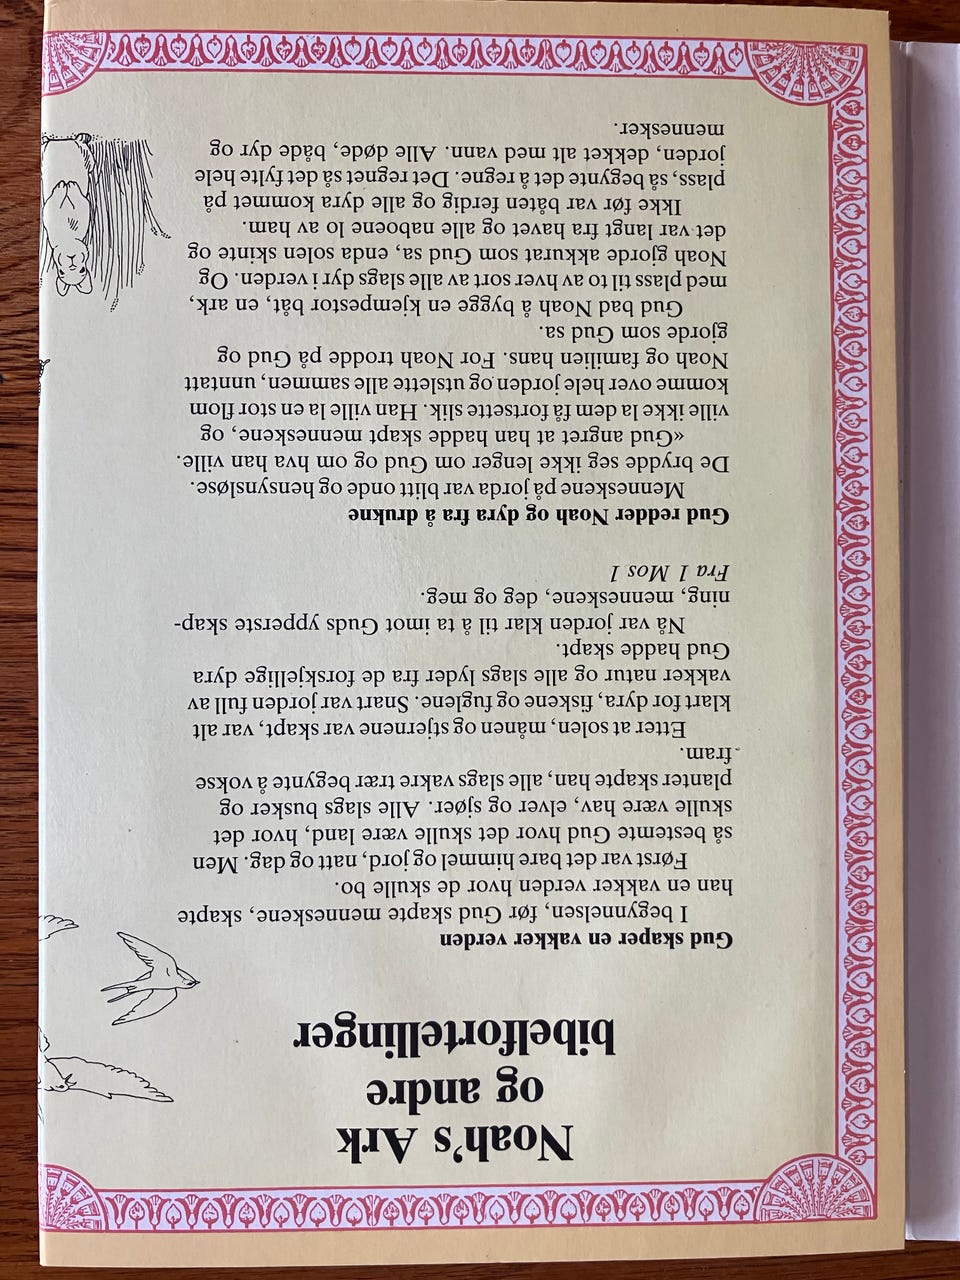 Noah's Ark
og andre
bibelfortellinger
Gud skaper en vakker verden
I begynnelsen, før Gud skapte menneskene, skapte
han en vakker verden hvor de skulle bo.
Først var det bare himmel og jord, natt og dag. Men
så bestemte Gud hvor det skulle være land, hvor det
skulle være hav, elver og sjøer. Alle slags busker og
planter skapte han, alle slags vakre trær begynte å vokse
fram.
Etter at solen, månen og stjernene var skapt, var alt
klart for dyra, fiskene og fuglene. Snart var jorden full av
vakker natur og alle slags lyder fra de forskjellige dyra
Gud hadde skapt.
Nå var jorden klar til å ta imot Guds ypperste skap-
ning, menneskene, deg og meg.
Fra 1 Mos 1
Gud redder Noah og dyra fra å drukne
Menneskene på jorda var blitt onde og hensynsløse.
De brydde seg ikke lenger om Gud og om hva han ville.
«Gud angret at han hadde skapt menneskene, og
ville ikke la dem få fortsette slik. Han ville la en stor flom
komme over hele jorden og utslette alle sammen, unntatt
Noah og familien hans. For Noah trodde på Gud og
gjorde som Gud sa.
Gud bad Noah å bygge en kjempestor båt, en ark,
med plass til to av hver sort av alle slags dyr i verden. Og
Noah gjorde akkurat som Gud sa, enda solen skinte og
det var langt fra havet og alle naboene lo av ham.
Ikke før var båten ferdig og alle dyra kommet på
plass, så begynte det å regne. Det regnet så det fylte hele
jorden, dekket alt med vann. Alle døde, både dyr og
mennesker.